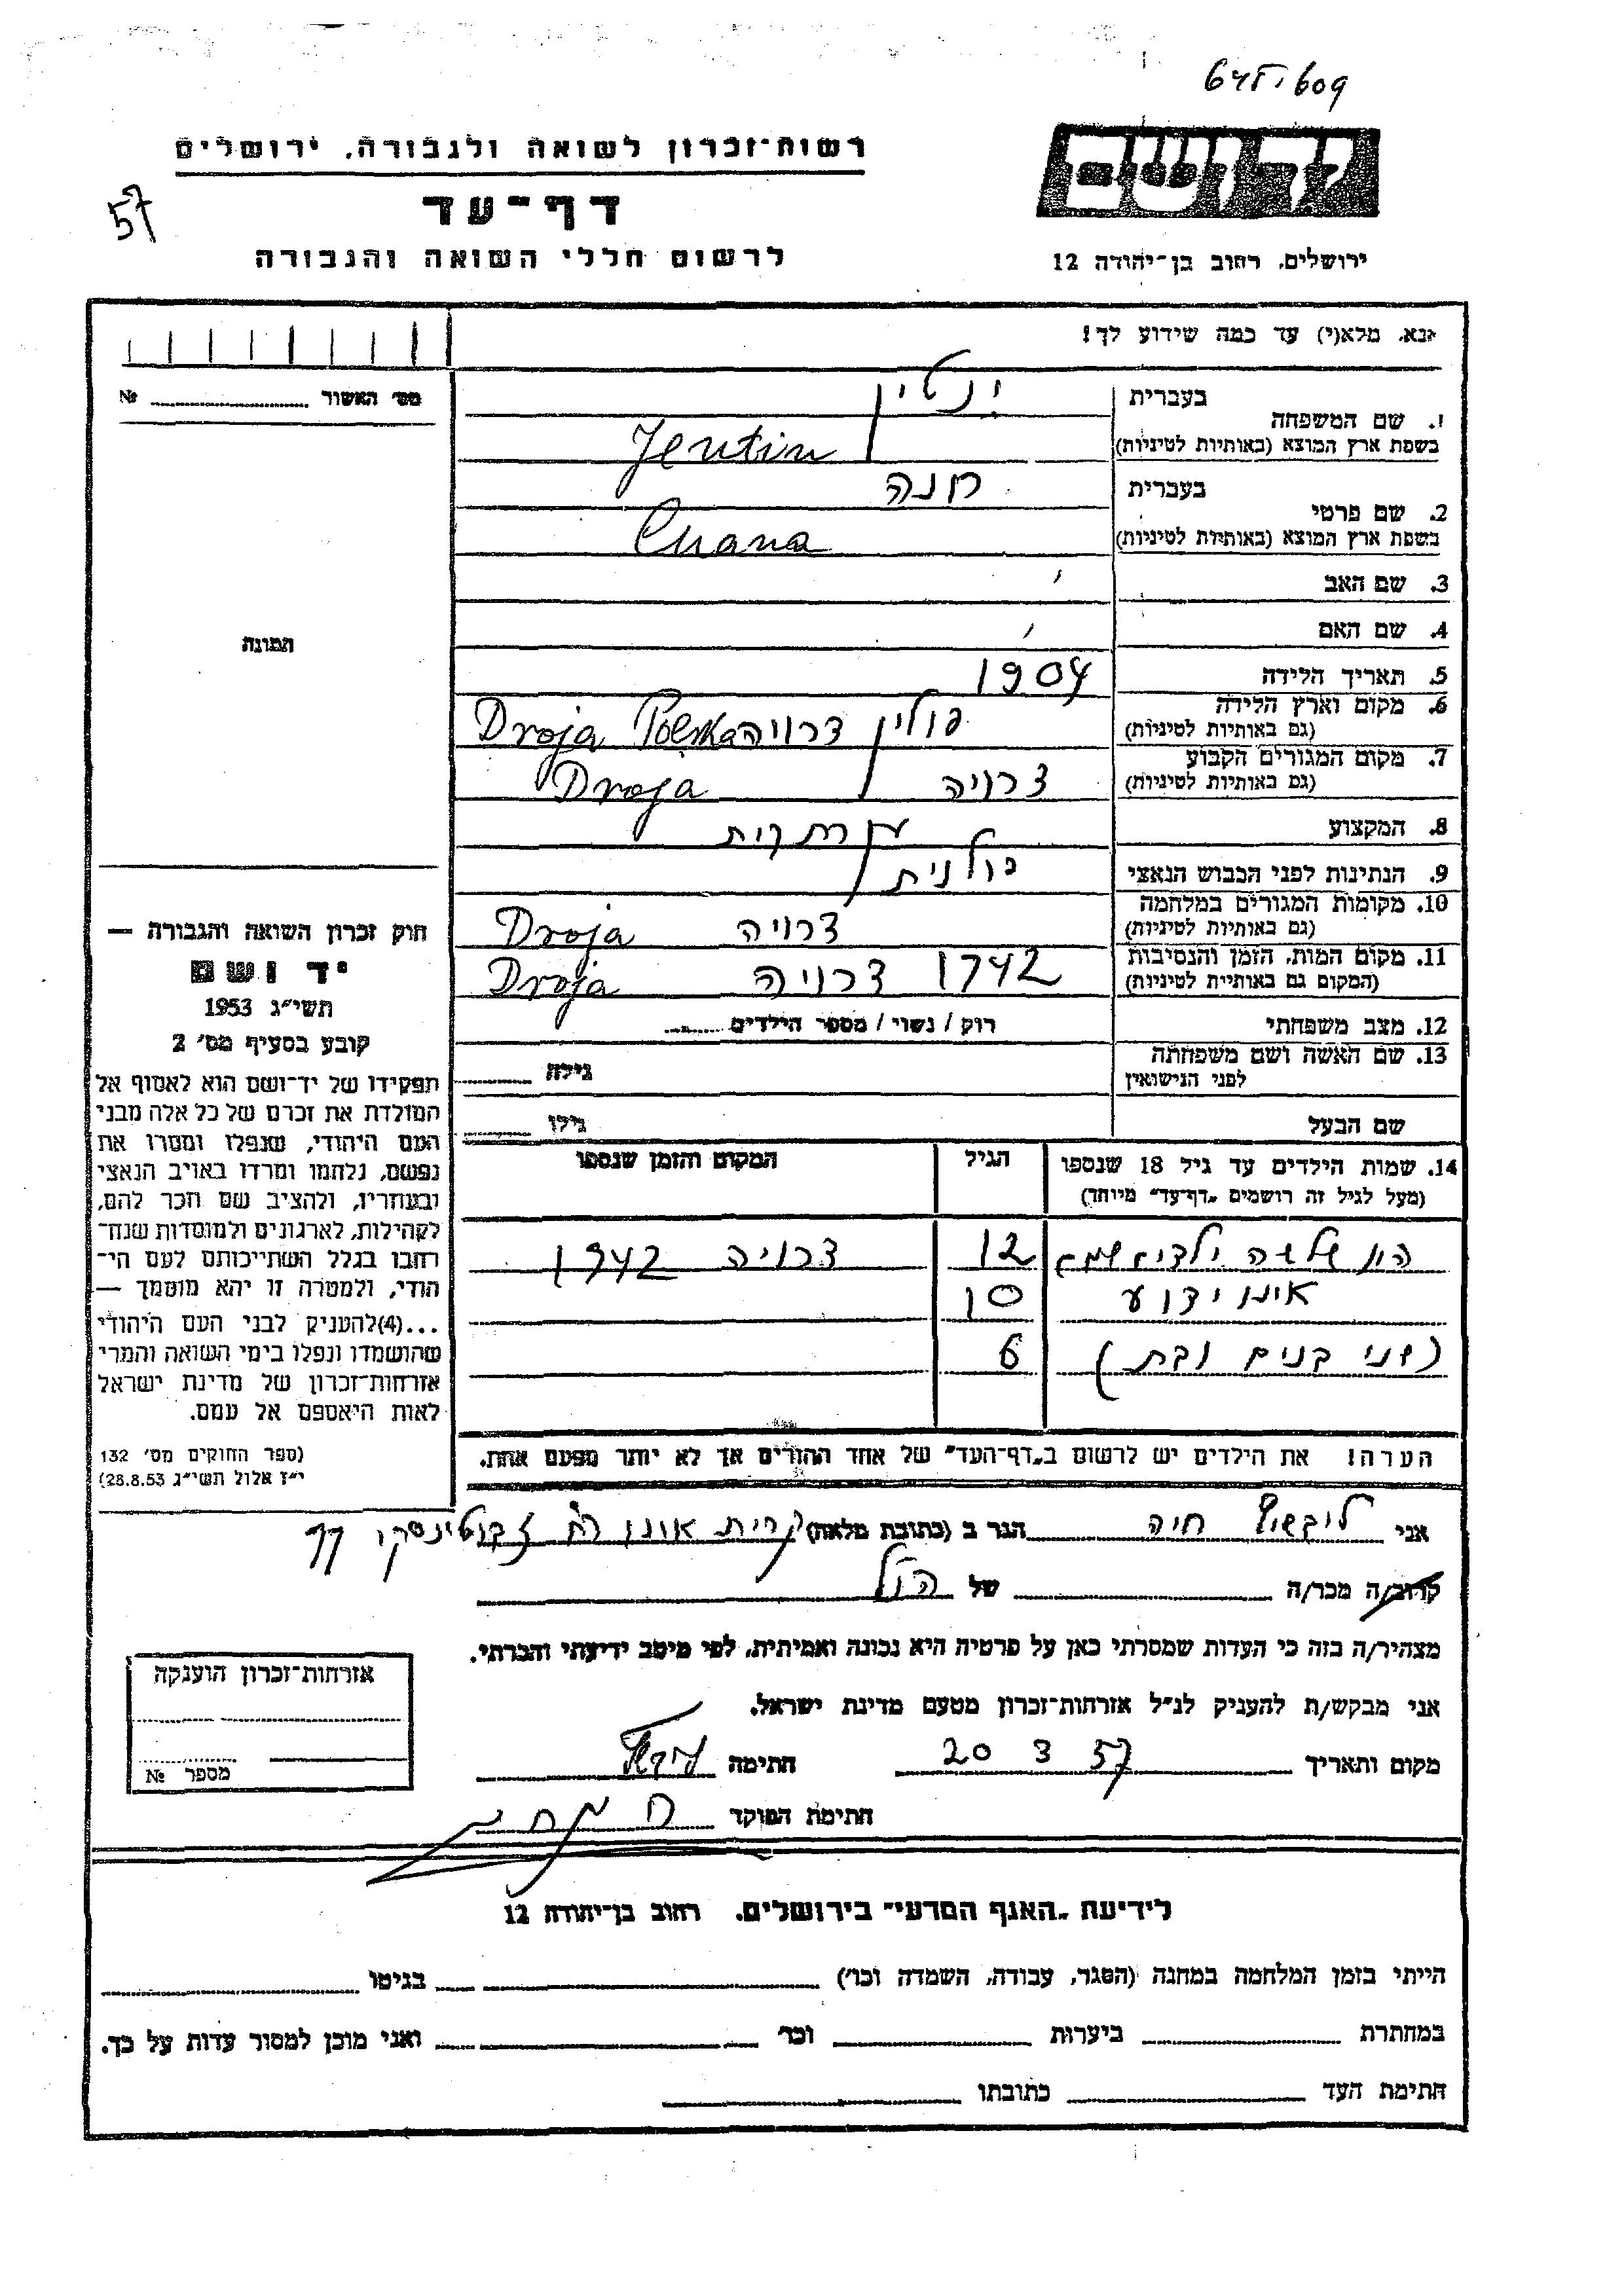 645/609
רשות־זכרון לשואה ולגבורה, ירושלים
ידושם
57
דף־עד
לרשום חללי השואה והגבורה
ירושלים, רחוב בן־יהודה 12
נא, מלא(י) עד כמה שידוע לך!
מס' האשור № 
בעברית ינטין
1. שם המשפחה
בשפת ארץ המוצא (באותיות לטיניות) Jentin
בעברית חנה
2. שם פרטי
בשפת ארץ המוצא (באותיות לטיניות) Chana
3. שם האב
4. שם האם
התמונה
5. תאריך הלידה 1904
6. מקום וארץ הלידה פולין דרויה Droja Polska
(גם באותיות לטיניות)
7. מקום המגורים הקבוע דרויה Droja
(גם באותיות לטיניות)
8. המקצוע
9. הנתינות לפני הכבוש הנאצי פולנית
10. מקומות המגורים במלחמה דרויה Droja
(גם באותיות לטיניות)
11. מקום המות, הזמן והנסיבות 1942 דרויה Droja
(המקום גם באותיות לטיניות)
12. מצב משפחתי רוק / נשוי / מספר הילדים
13. שם האשה ושם משפחתה
לפני הנישואין גילה
שם הבעל גילו
14. שמות הילדים עד גיל 18 שנספו הגיל המקום והזמן שנספו
(מעל לגיל זה רושמים „דף־עד" מיוחד)
היו שלשה ילדים שמם 12 דרויה 1942
אינו ידוע 10
(שני בנים ובת) 6
הערה! את הילדים יש לרשום ב„דף־העד" של אחד ההורים אך לא יותר מפעם אחת.
חוק זכרון השואה והגבורה —
יד ושם
תשי"ג 1953
קובע בסעיף מס' 2
תפקידו של יד־ושם הוא לאסוף אל
המולדת את זכרם של כל אלה מבני
העם היהודי, שנפלו ומסרו את
נפשם, נלחמו ומרדו באויב הנאצי
ובעוזריו, ולהציב שם וזכר להם,
לקהילות, לארגונים ולמוסדות שנח־
רבו בגלל השתייכותם לעם הי־
הודי, ולמטרה זו יהא מוסמך —
...(4) להעניק לבני העם היהודי
שהושמדו ונפלו בימי השואה והמרי
אזרחות־זכרון של מדינת ישראל
לאות היאספם אל עמם.
(ספר החוקים מס' 132
י"ז אלול תשי"ג 28.8.53)
אני ליבשיץ חיה הגר ב (כתובת מלאה) קרית אונו רח' ז'בוטינסקי
קרוב/ה מכר/ה של הנ"ל
מצהיר/ה בזה כי העדות שמסרתי כאן על פרטיה היא נכונה ואמיתית, לפי מיטב ידיעתי והכרתי.
אני מבקש/ת להעניק לנ"ל אזרחות־זכרון מטעם מדינת ישראל.
מקום ותאריך 20 3 57 חתימה
חתימת הפוקד
אזרחות־זכרון הוענקה
מספר №
לידיעת „האגף המדעי" בירושלים, רחוב בן־יהודה 12
הייתי בזמן המלחמה במחנה (הסגר, עבודה, השמדה וכו') בגיטו
במחתרת ביערות וכו' ואני מוכן למסור עדות על כך.
חתימת העד כתובתו